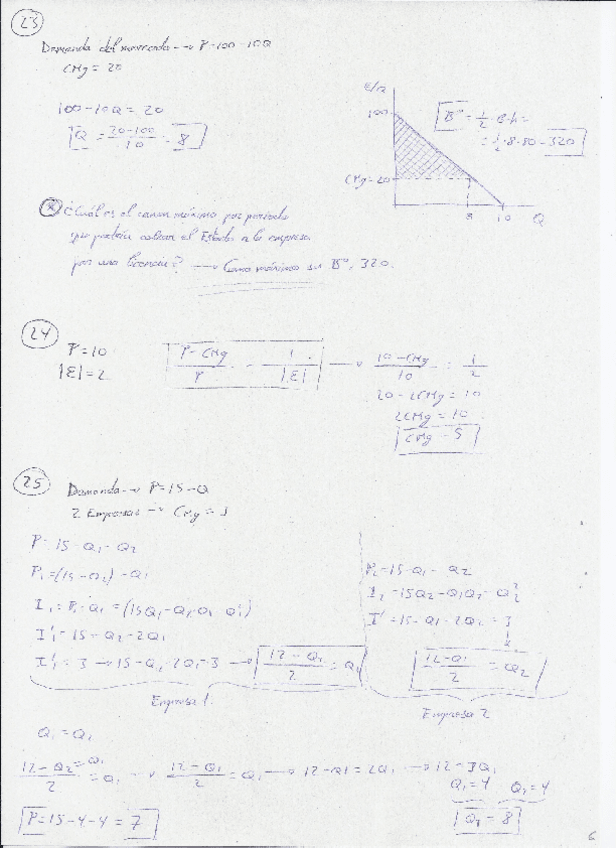 23
Demanda del mercado → P=100-10Q
CMg = 20
100-10Q = 20
Q = 20-100 / 10 = 8
€/Q
100
CMg=20
8 10 Q
Bº = 1/2 · B·h =
= 1/2 · 8 · 80 = 320
* ¿Cuál es el canon máximo por periodo
que podría cobrar el Estado a la empresa
por una licencia? → Como máximo su Bº, 320.
24
P=10
|E|=2
P-CMg / P = 1 / |E| → 10-CMg / 10 = 1 / 2
20-2CMg = 10
2CMg = 10
CMg = 5
25
Demanda → P=15-Q
2 Empresas → CMg = 3
P=15-Q1-Q2
P1=(15-Q2)-Q1
I1=P1·Q1=(15Q1-Q2Q1-Q1²)
I'1=15-Q2-2Q1
I'1=3 → 15-Q2-2Q1=3 → 12-Q2 / 2 = Q1
Empresa 1.
P2=15-Q1-Q2
I2=15Q2-Q1Q2-Q2²
I'=15-Q1-2Q2=3
12-Q1 / 2 = Q2
Empresa 2
12-Q2 / 2 = Q1 → 12-Q1 / 2 = Q1 → 12-Q1=2Q1 → 12=3Q1
Q1=4 Q2=4
P=15-4-4=7
QT=8
6